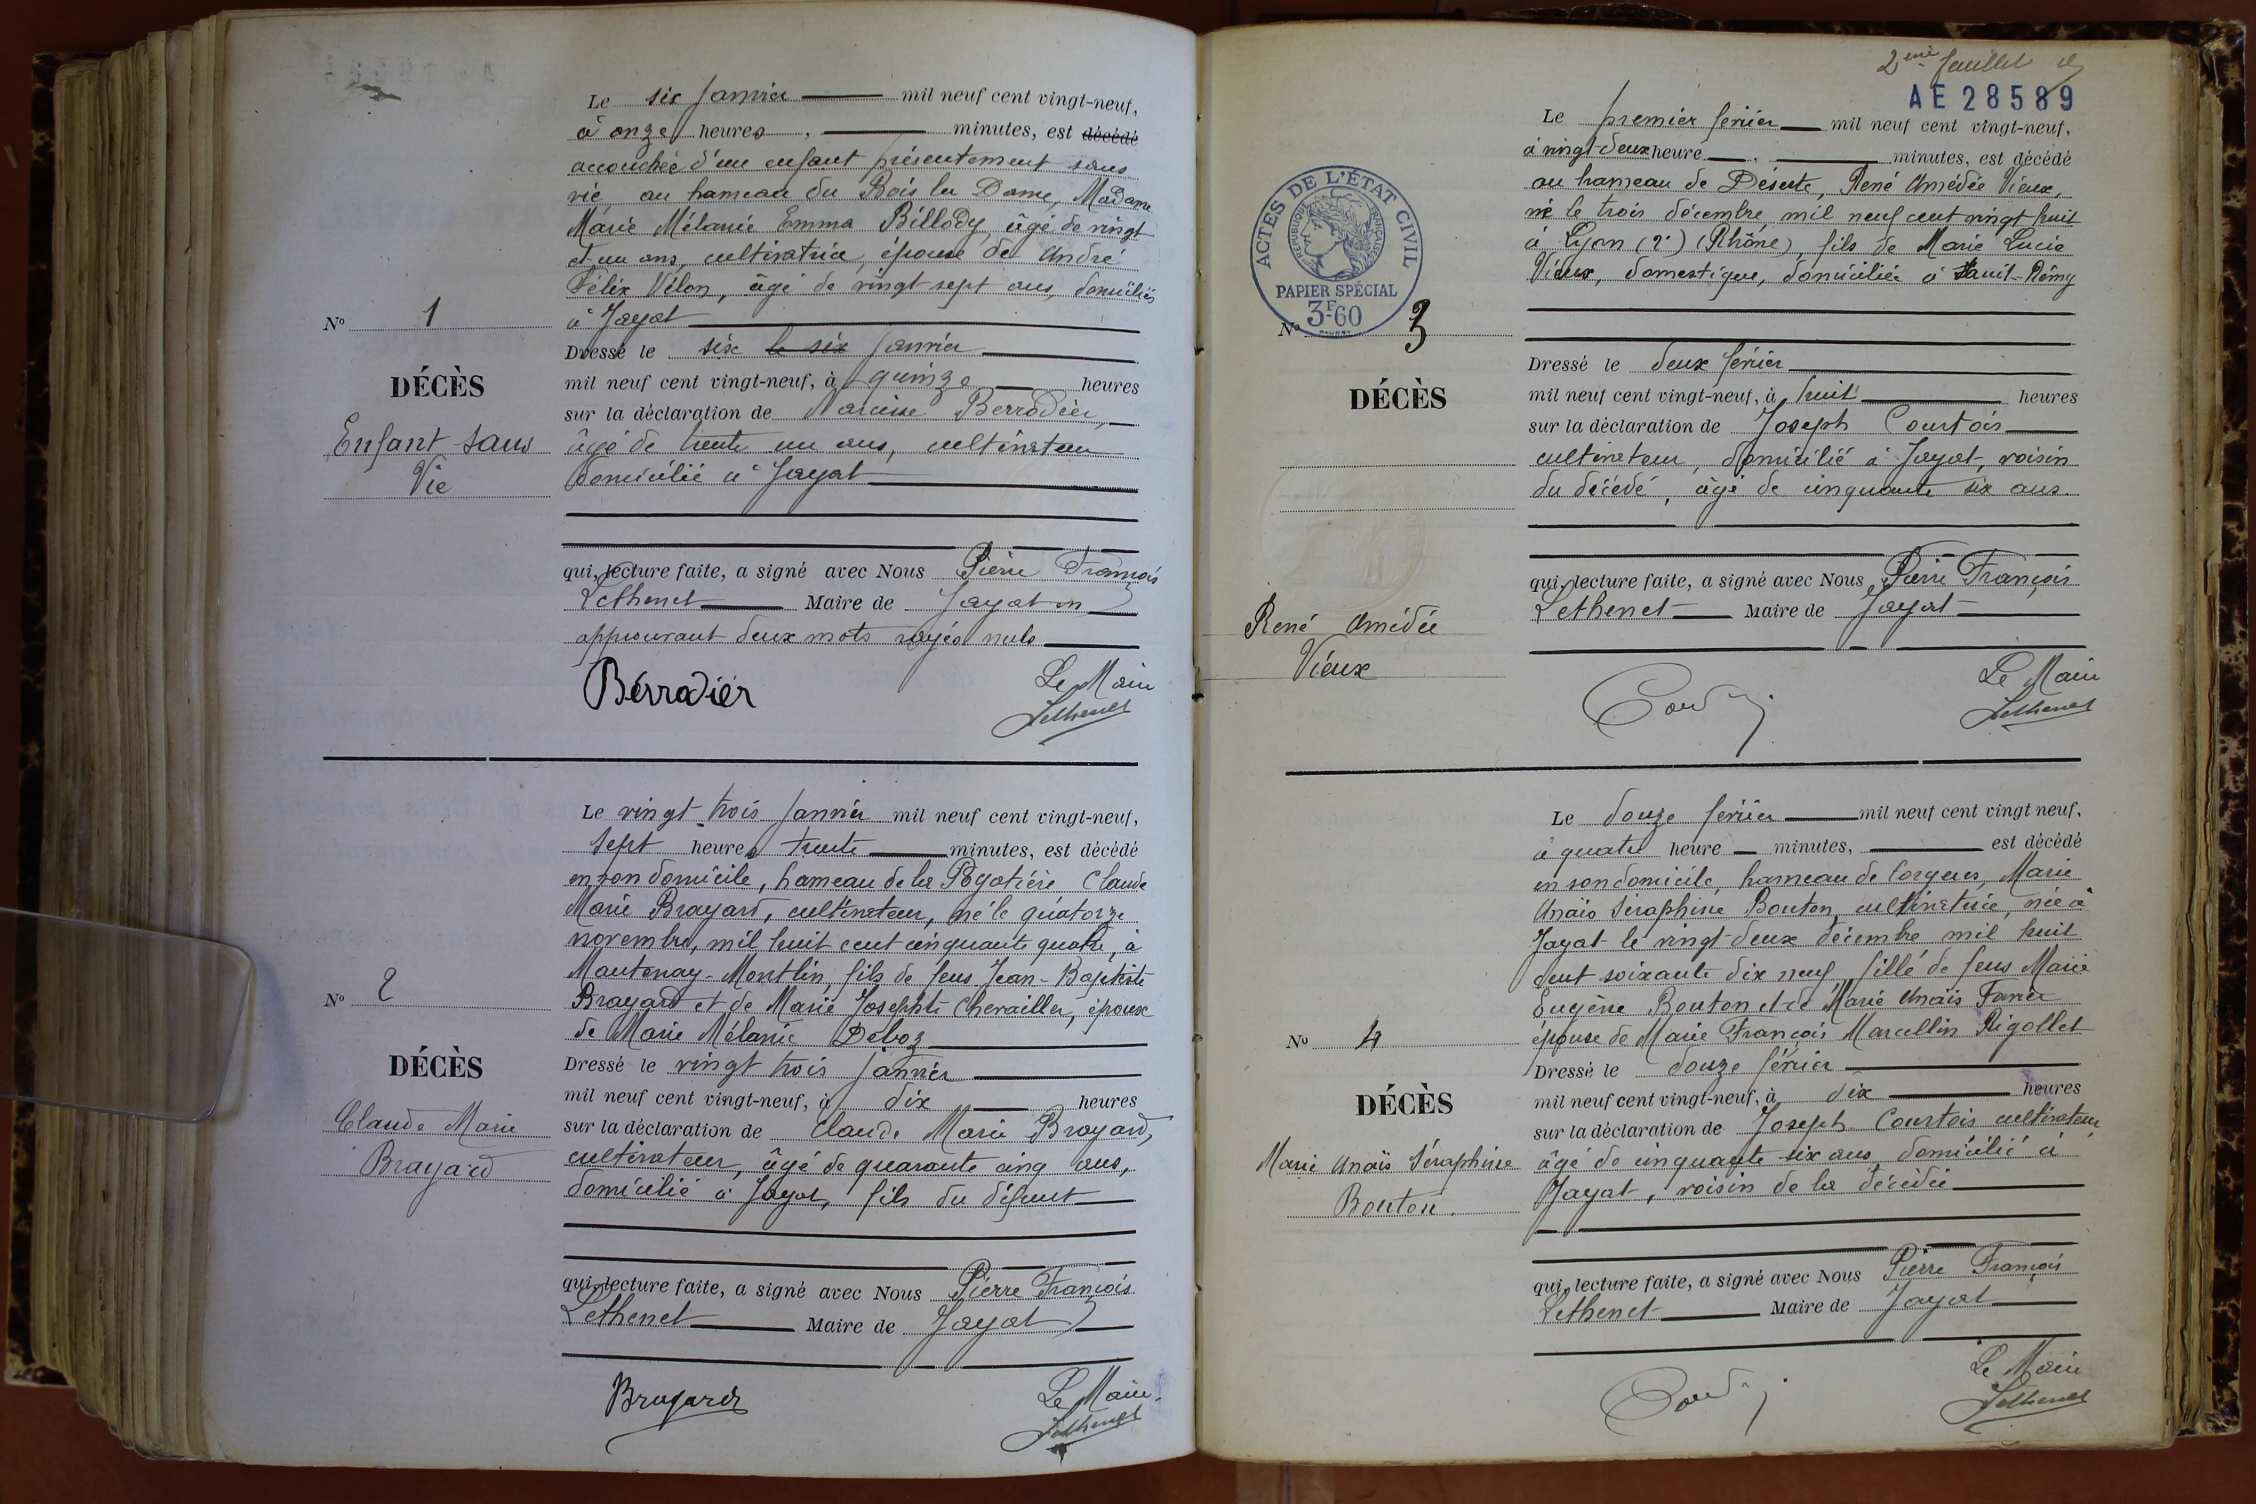 Le six Janvier mil neuf cent vingt-neuf,
à onze heures, minutes, est décédé
accouchée d'un enfant présentement sans
vie, au hameau du Bois la Dame, Madame
Marie Mélanie Emma Billody, âgé de vingt
et un ans, cultivatrice, épouse de André
Félix Vélon, âgé de vingt sept ans, domiciliés
à Jayat
Dressé le six le six Janvier
mil neuf cent vingt-neuf, à quinze heures
sur la déclaration de Narcisse Berrodier,
âgé de trente un ans, cultivateur
domicilié à Jayat
qui, lecture faite, a signé avec Nous Pierre François
Lethenet Maire de Jayat
approuvant deux mots rayés nuls
Berrodier
Le Maire
Lethenet
No 1
DÉCÈS
Enfant sans
Vie
Le vingt trois Janvier mil neuf cent vingt-neuf,
sept heures trente minutes, est décédé
en son domicile, hameau de la Claude
Marie Brayard, cultivateur, né le quatorze
novembre, mil huit cent cinquante quatre, à
Mantenay-Montlin, fils de feus Jean-Baptiste
Brayard et de Marie Josephte Chevailler, époux
de Marie Mélanie Deboz
Dressé le vingt trois Janvier
mil neuf cent vingt-neuf, à dix heures
sur la déclaration de Claude Marie Brayard,
cultivateur, âgé de quarante cinq ans,
domicilié à Jayat, fils du défunt
qui, lecture faite, a signé avec Nous Pierre François
Lethenet Maire de Jayat
Brayard
Le Maire
Lethenet
No 2
DÉCÈS
Claude Marie
Brayard
2eme feuillet
AE28589
Le premier février mil neuf cent vingt-neuf,
à vingt-deux heure, minutes, est décédé
au hameau de Déserte, René Amédée Vieux,
né le trois décembre mil neuf cent vingt huit
à Lyon (2e) (Rhône), fils de Marie Lucie
Vieux, domestique, domiciliée à Saint-Rémy
Dressé le deux février
mil neuf cent vingt-neuf, à huit heures
sur la déclaration de Joseph Courtois
cultivateur, domicilié à Jayat, voisin
du décédé, âgé de cinquante six ans.
qui, lecture faite, a signé avec Nous Pierre François
Lethenet Maire de Jayat
Le Maire
Lethenet
ACTES DE L'ÉTAT CIVIL
RÉPUBLIQUE FRANÇAISE
PAPIER SPÉCIAL
3F60
No 3
DÉCÈS
René Amédée
Vieux
Le douze février mil neuf cent vingt neuf,
à quatre heure minutes, est décédé
en son domicile, hameau de Marie
Anaïs Séraphine Bouton, cultivatrice, née à
Jayat le vingt-deux décembre mil huit
cent soixante dix neuf, fille de feus Marie
Eugène Bouton et de Marie Anaïs
épouse de Marie François Marcellin Rigollet
Dressé le douze février
mil neuf cent vingt-neuf, à dix heures
sur la déclaration de Joseph Courtois cultivateur,
âgé de cinquante six ans domicilié à
Jayat, voisin de la décédée
qui, lecture faite, a signé avec Nous Pierre François
Lethenet Maire de Jayat
Le Maire
Lethenet
No 4
DÉCÈS
Marie Anaïs Séraphine
Bouton.